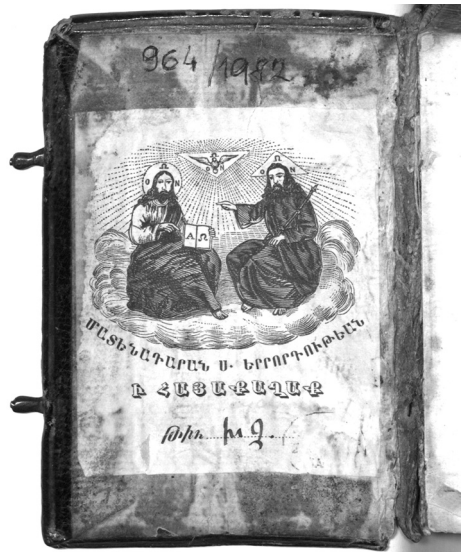 964/1982
Ο Ω Ν
Ο Ω Ν
Α Ω
ՄԱՏԵՆԱԴԱՐԱՆ Ս. ԵՐՐՈՐԴՈՒԹԵԱՆ
Ի ՀԱՅԱՔԱՂԱՔ
Թիւ խԶ.